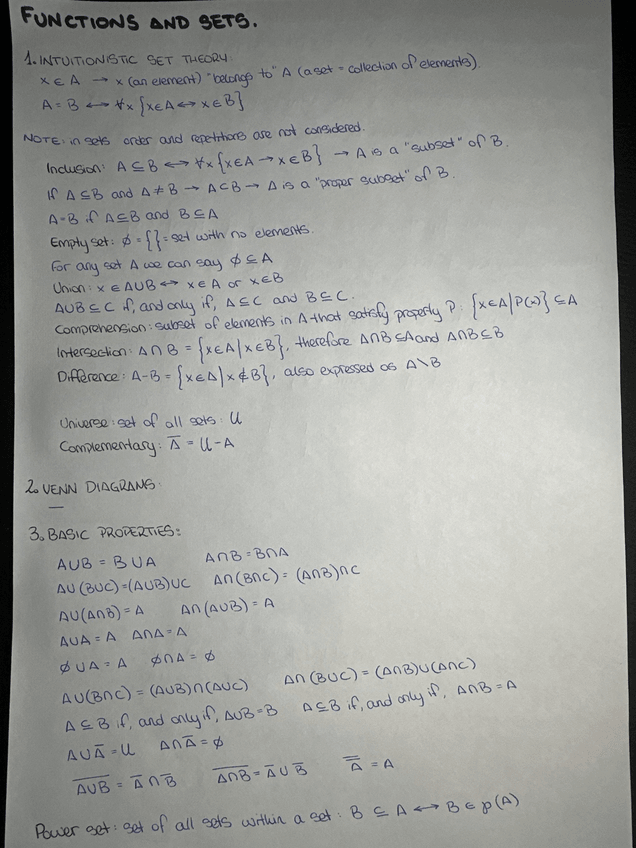 FUNCTIONS AND SETS.
1. INTUITIONISTIC SET THEORY:
x ∈ A → x (an element) "belongs to" A (a set = collection of elements).
A = B ↔ ∀x {x∈A ↔ x∈B}
NOTE: in sets order and repetitions are not considered.
Inclusion: A ⊆ B ↔ ∀x {x∈A → x∈B} → A is a "subset" of B.
If A ⊆ B and A ≠ B → A⊂B → A is a "proper subset" of B.
A=B if A⊆B and B⊆A
Empty set: ∅ = {} = set with no elements.
For any set A we can say ∅ ⊆ A
Union: x ∈ A∪B ↔ x∈A or x∈B
A∪B ⊆ C if, and only if, A⊆C and B⊆C.
Comprehension: subset of elements in A that satisfy property P: {x∈A | P(x)} ⊆ A
Intersection: A∩B = {x∈A | x∈B}, therefore A∩B ⊆ A and A∩B ⊆ B
Difference: A-B = {x∈A | x∉B}, also expressed as A\B
Universe: set of all sets: U
Complementary: A̅ = U-A
2. VENN DIAGRAMS:
—
3. BASIC PROPERTIES:
A∪B = B∪A A∩B = B∩A
A∪(B∪C) = (A∪B)∪C A∩(B∩C) = (A∩B)∩C
A∪(A∩B) = A A∩(A∪B) = A
A∪A = A A∩A = A
∅∪A = A ∅∩A = ∅
A∪(B∩C) = (A∪B)∩(A∪C) A∩(B∪C) = (A∩B)∪(A∩C)
A ⊆ B if, and only if, A∪B = B A ⊆ B if, and only if, A∩B = A
A∪A̅ = U A∩A̅ = ∅
A̅∪̅B̅ = A̅ ∩ B̅ A̅∩̅B̅ = A̅ ∪ B̅ A̿ = A
Power set: set of all sets within a set: B ⊆ A ↔ B ∈ p(A)